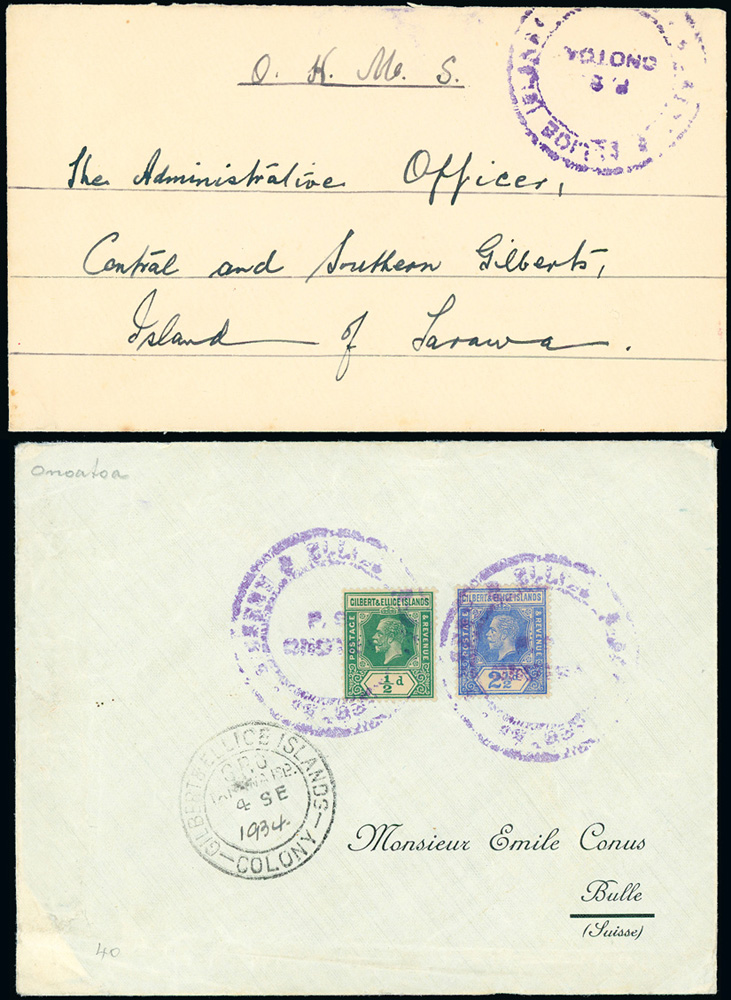 O. H. M. S.
P. S.
ONOTOA
The Administrative Officer,
Central and Southern Gilberts,
Island of Tarawa.
onoatoa
GILBERT & ELLICE ISLANDS
POSTAGE & REVENUE
½d
GILBERT & ELLICE ISLANDS
POSTAGE & REVENUE
2½d
GILBERT & ELLICE ISLANDS
G.P.O.
4 SE
1934
COLONY
Monsieur Emile Conus
Bulle
(Suisse)
40